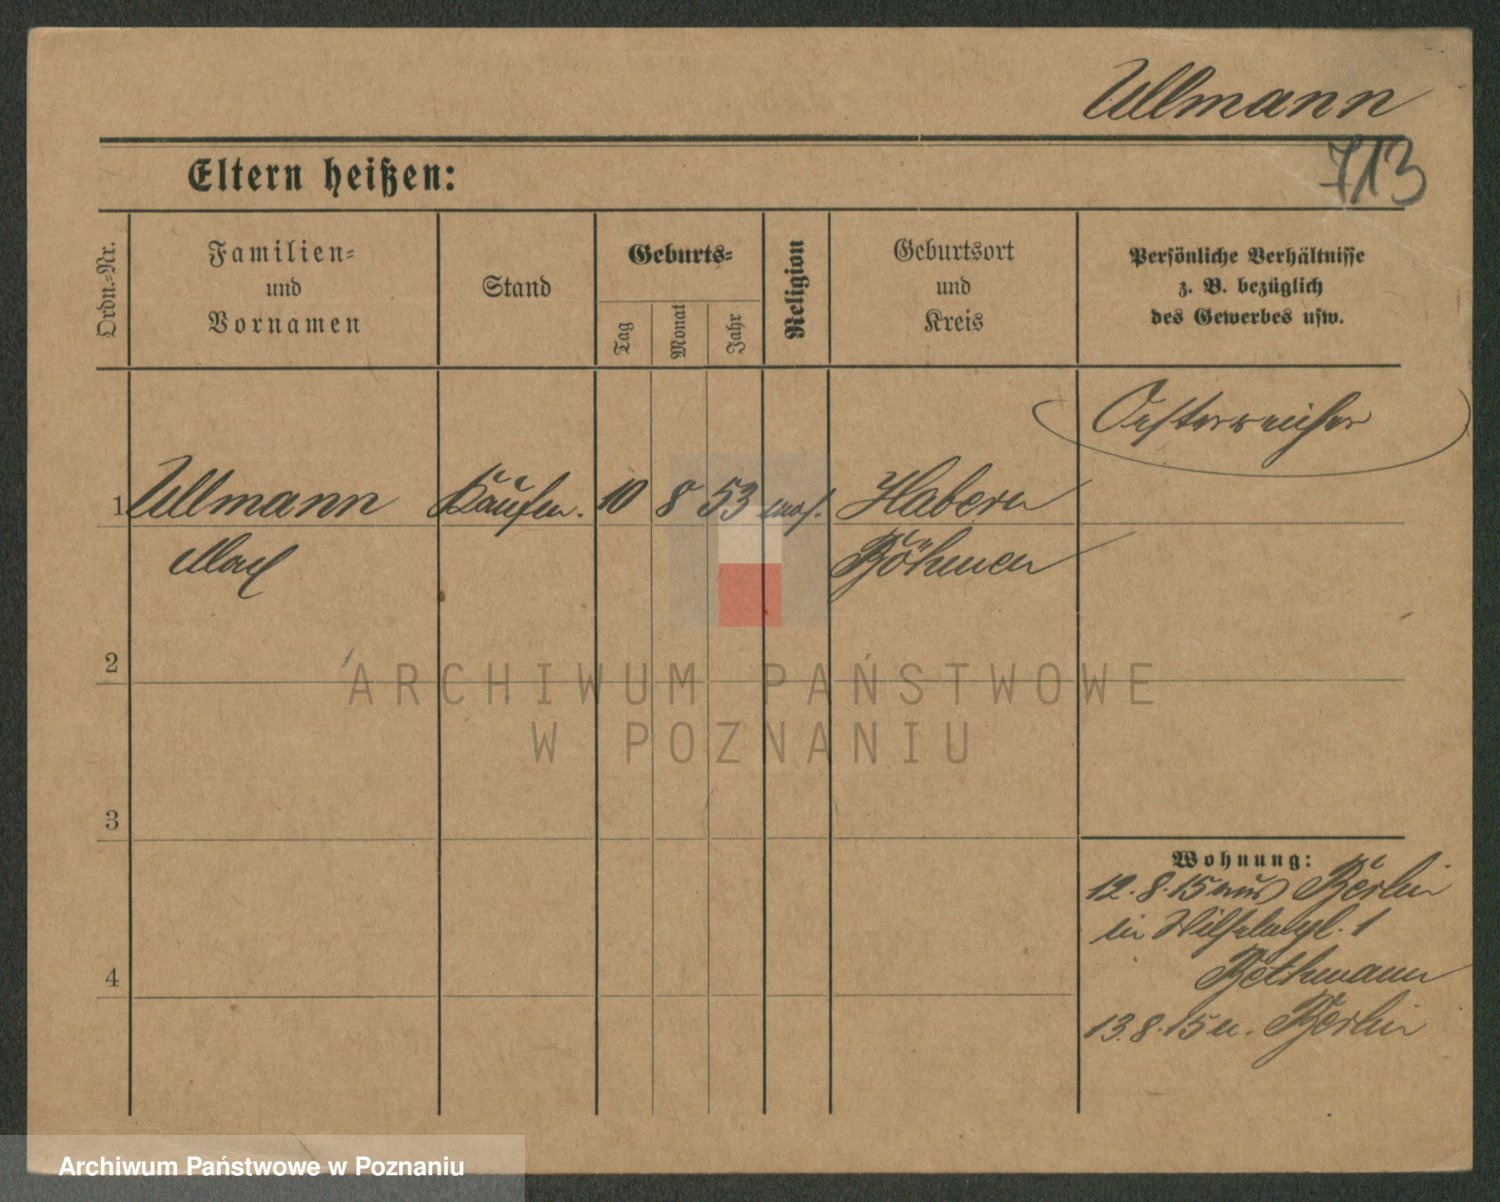 Ullmann
713
Eltern heißen:
Ordn.-Nr.
Familien-
und
Vornamen
Stand
Geburts-
Tag
Monat
Jahr
Religion
Geburtsort
und
Kreis
Persönliche Verhältnisse
z. B. bezüglich
des Gewerbes usw.
Oesterreicher
1 Ullmann Kaufm. 10 8 53 mos. Habern
Böhmen
2
3
4
Wohnung:
12.8.15 aus Berlin
in Wilhelmpl. 1
Bethmann
13.8.15 n. Berlin
ARCHIWUM PAŃSTWOWE
W POZNANIU
Archiwum Państwowe w Poznaniu